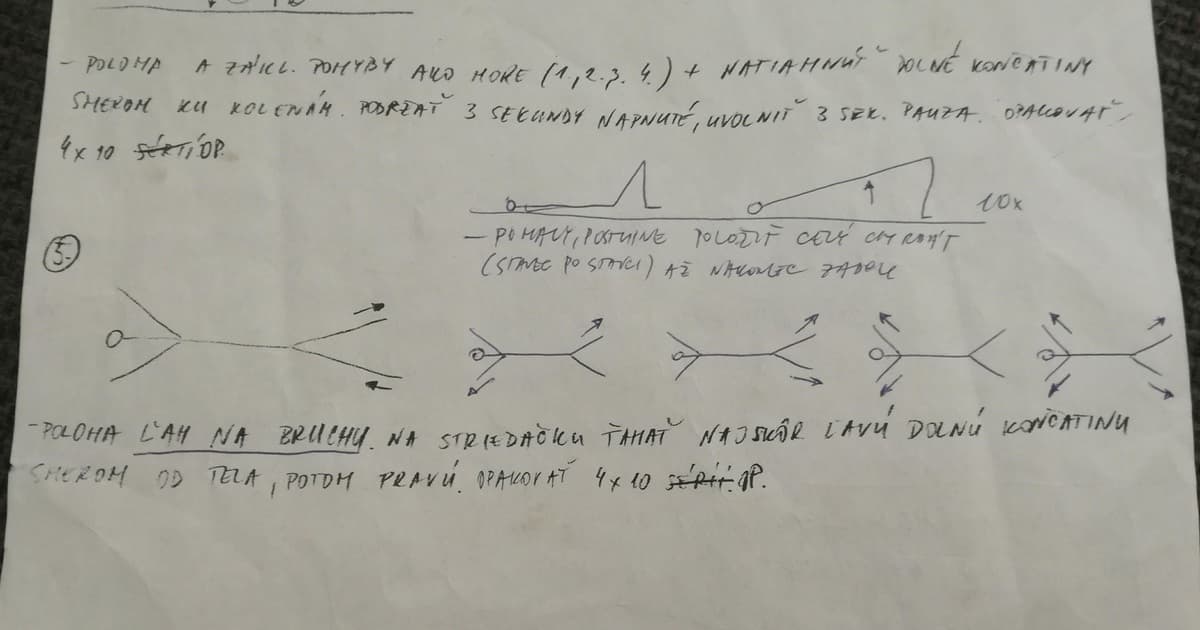 - POLOHA A ZÁKL. POHYBY AKO HORE (1., 2. 3. 4.) + NATIAHNÚŤ DOLNÉ KONČATINY
SMEROM KU KOLENÁM. PODRŽAŤ 3 SEKUNDY NAPNUTÉ, UVOLNIŤ 3 SEK. PAUZA. OPAKOVAŤ
4x10 SÉRTÍ OP.
10x
- POMALY, POSTUPNE POLOŽIŤ CELÝ CHRBÁT
(STAVEC PO STAVCI) AŽ NAKONIEC ZADOK
5.
- POLOHA ĽAH NA BRUCHU. NA STRIEDAČKU ŤAHAŤ NAJSKÔR ĽAVÚ DOLNÚ KONČATINU
SMEROM OD TELA, POTOM PRAVÚ. OPAKOVAŤ 4x10 SÉRIÍ OP.